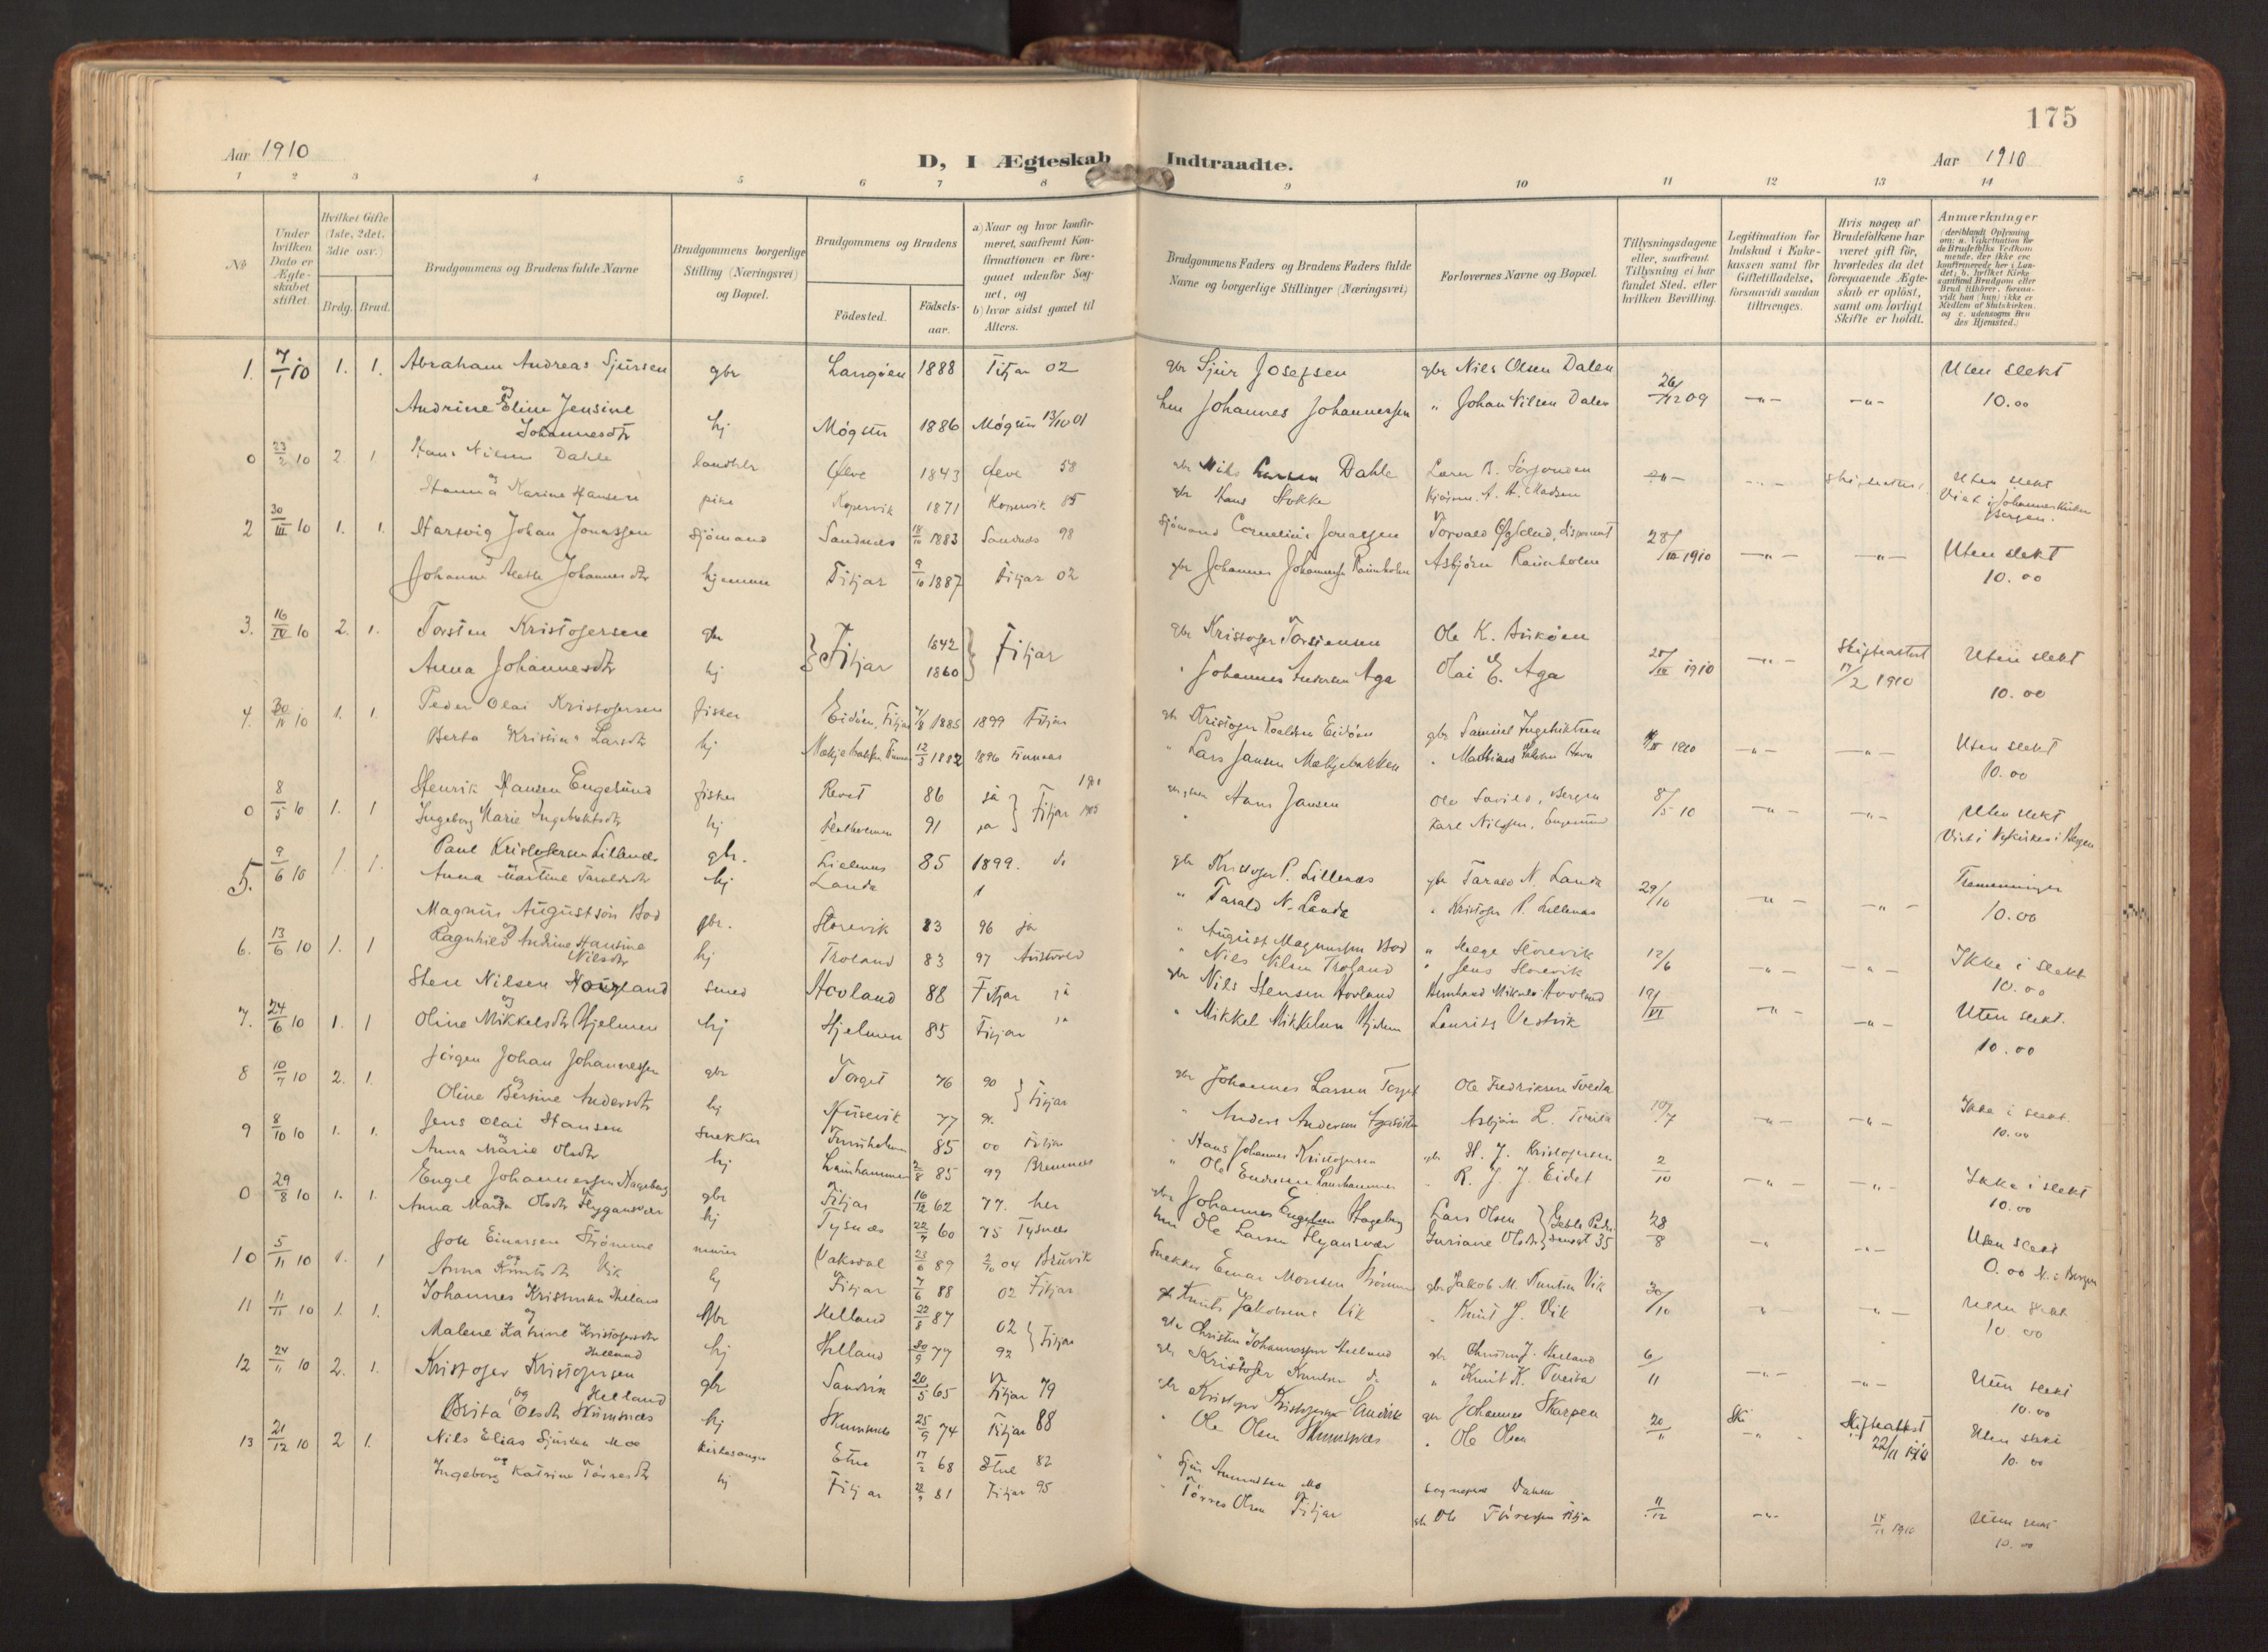 175
Aar 1910
D, I Ægteskab Indtraadte.
Aar 1910
1 2 3 4 5 6 7 8 9 10 11 12 13 14
№
Under hvilken Dato er Ægteskabet stiftet.
Hvilket Gifte (1ste, 2det, 3die osv.)
Brdg. Brud.
Brudgommens og Brudens fulde Navne
Brudgommens borgerlige Stilling (Næringsvei) og Bopæl.
Brudgommens og Brudens
Fødested.
Fødsels-aar.
a) Naar og hvor konfirmeret, saafremt Konfirmationen er foregaaet udenfor Sognet, og
b) hvor sidst gaaet til Alters.
Brudgommens Faders og Brudens Faders fulde Navne og borgerlige Stillinger (Næringsvei)
Forlovernes Navne og Bopæl.
Tillysningsdagene eller, saafremt Tillysning ei har fundet Sted, efter hvilken Bevilling.
Legitimation for Indskud i Enkekassen samt for Giftetilladelse, forsaavidt saadan tiltrænges.
Hvis nogen af Brudefolkene har været gift før, hvorledes da det foregaaende Ægteskab er opløst, samt om lovligt Skifte er holdt.
Anmærkninger (deriblandt Oplysning om: a. Vakcination for de Brudefolks Vedkommende, der ikke ere konfirmerede her i Landet; b. hvilket Kirkesamfund Brudgom eller Brud tilhører, forsaavidt han (hun) ikke er Medlem af Statskirken, og c. udensogns Brudes Hjemsted.)
1. 7/1 10 1. 1. Abraham Andreas Sjursen gbr Langøen 1888 Fitjar 02 gbr Sjur Josefsen gbr Nils Olsen Dalen 26/12 09 -"- -"- Uten slekt
og Andrine Eline Jensine Johannesdtr hj Møgster 1886 Møgster 13/10 01 Johannes Johannessen " Johan Nilsen Dalen 10.00
0 23/2 10 2. 1 Hans Nilsen Dahle landhdr Ølve 1843 Ølve 58 gbr Nils Larsen Dahle Uten slekt
og Hanna Karine Hansen pike Kopervik 1871 Kopervik 85 gbr Hans Stokke Kjøpm. A. H. Madsen Viet i Johanneskirken Bergen.
2 30/III 10 1. 1. Hartvig Johan Jonassen Sjømand Sandnes 18/10 1883 Sandnes 98 Sjømand Cornelius Jonassen 28/III 1910 -"- -"- Uten slekt
Johanne Alette Johannesdtr hjemme Fitjar 9/10 1887 Fitjar 02 gbr Johannes Johannessen Raunholm Asbjørn Raunholm 10.00
3. 16/IV 10 2. 1. Torsten Kristofersen gbr Fitjar 1842 Fitjar gbr Kristofer Torstensen Ole K. Aukøen -"- Skifteattest 17/2 1910 Uten slekt
Anna Johannesdtr hj 1860 " Johannes Aga Olai E. Aga 1910 10.00
4. 30/IV 10 1. 1. Peder Olai Kristofersen fisker Eidøen, Fitjar 1885 1899 Fitjar gbr Kristofer Eidøen gbr Samuel Ingebriktsen 1910 -"- -"- Uten slekt
Berta Kristine Larsdtr hj 12/3 1882 1896 Finnaas " Lars Jansen Mælkjebakken 10.00
0 8/5 10 1. 1 Henrik Hansen Engesund fisker 86 ja Fitjar 1900 Hans Jansen Bergen 8/5 10 -"- -"- Uten slekt
Ingeborg Marie Ingebriktsdtr hj 91 ja 1905 Karl Nilssen, Engesund Viet i Nykirken i Bergen
5. 9/6 10 1. 1. Paul Kristofersen Lillenæs gbr. Lillenæs 85 1899. gbr Kristofer P. Lillenæs gbr Tarald N. Landa 29/10 -"- -"- Tremenninger
Anna Martine Taraldsdtr hj Landa " Tarald N. Landa " Kristofer P. Lillenæs 10.00
6. 13/6 10 1. 1 Magnus Augustson Bod gbr. Storevik 83 96 ja " August Magnussen Bod " Helge Storevik 12/6 -"- -"- Ikke i slekt
og Ragnhild Andrine Hansine Nilsdtr hj Troland 83 97 " Nils Nilsen Troland " Jens Storevik 10.00
7. 24/6 10 1. 1 Sten Nilsen Hovland smed Hovland 88 Fitjar ja gbr Nils Stensen Hovland Hovland 19/VI -"- -"- Uten slekt.
og Oline Mikkelsdtr Hjelmen hj Hjelmen 85 Fitjar ja " Mikkel Mikkelsen Hjelmen Laurits Vestvik 10.00
8 10/7 10 2. 1. Jørgen Johan Johannessen gbr Torget 76 90 Fitjar gbr Johannes Larsen Torget Ole Fredriksen Tveita 10/7 -"- -"- Ikke i slekt
og Oline Bertine Andersdtr hj Husevik 77 " Anders Andersen Asbjørn L. Tveita 10.00
9 8/10 10 1. 1. Jens Olai Hansen Snekker 85 00 Fitjar Hans Johannes Kristofersen gbr H. J. Kristofersen 2/10 -"- -"- Ikke i slekt
og Anna Marie Olsdtr hj Laurhammer 2/8 85 99 Bremnes " Ole Endresen Laurhammer " R. J. J. Eidet 10.00
0 29/8 10 1. 1. Engel Johannessen Hageberg gbr Fitjar 16/12 62 77. her gbr Johannes Engelsen Hageberg Lars Olsen 28/8 -"- -"- Uten slekt
Anna Marta Olsdtr Flygansvær hj Tysnæs 22/4 60 75 Tysnæs Ole Larsen Flygansvær 0.00 N. i Bergen
10 5/11 10 1. 1 Joh Einarsen Strømme murer Vaksdal 23/6 89 2/10 04 Bruvik Snekker Einar Monsen Strømme gbr Jakob M. Vik 30/10 " -"- Uten slekt
og Anna Knutsdtr Vik hj Fitjar 7/6 88 02 Fitjar Knut Jakobsen Vik " Knut J. Vik 10.00
11 11/11 10 1. 1. Johannes Kristensen Helland gbr Helland 22/8 87 02 Fitjar gbr Christen Johannessen Helland gbr Christen J. Helland 6/11 -"- -"- Uten slekt
og Malene Katrine Kristofersdtr Helland hj Helland 30/9 77 92 gbr Kristofer Knutsen do " Knut K. Tveita 10.00
12 24/11 10 2. 1. Kristofer Kristofersen Helland gbr Sandvik 20/5 65 Fitjar 79 gbr Kristofer Kristofersen Sandvik gbr Johannes Skarpen 20/11 -"- Skifteattest 22/11 1910 Uten slekt
og Brita Olsdtr Skumsnæs hj Skumsnæs 25/9 74 Fitjar 88 " Ole Olsen Skumsnæs " Ole Olsen 10.00
13 21/12 10 2 1. Nils Elias Sjursen Moe Kirkesanger Etne 17/2 68 Etne 82 " Sjur Amundsen Mo 11/12 -"- 14/11 1910 Uten slekt
og Ingeborg Katrine Tørresdtr hj Fitjar 81 Fitjar 95 " Tørres Olsen Fitjar gbr Ole Tørresen Fitjar 10.00